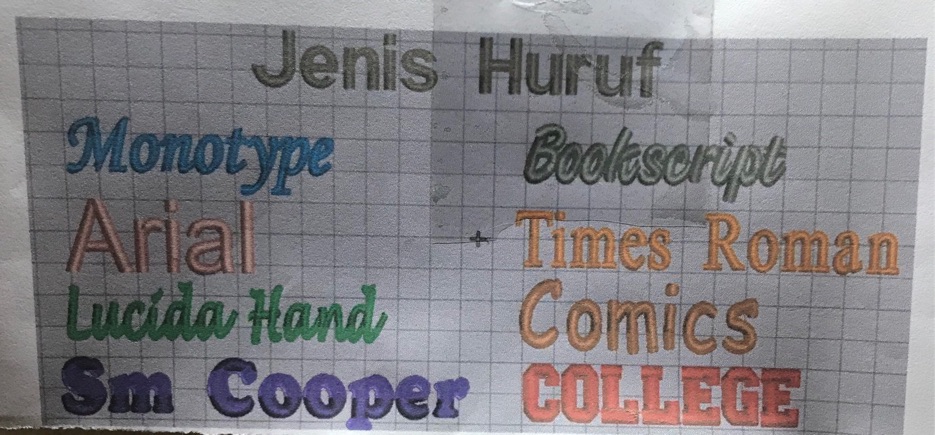 Jenis Huruf
Monotype
Bookscript
Arial
Times Roman
Lucida Hand
Comics
Sm Cooper
COLLEGE